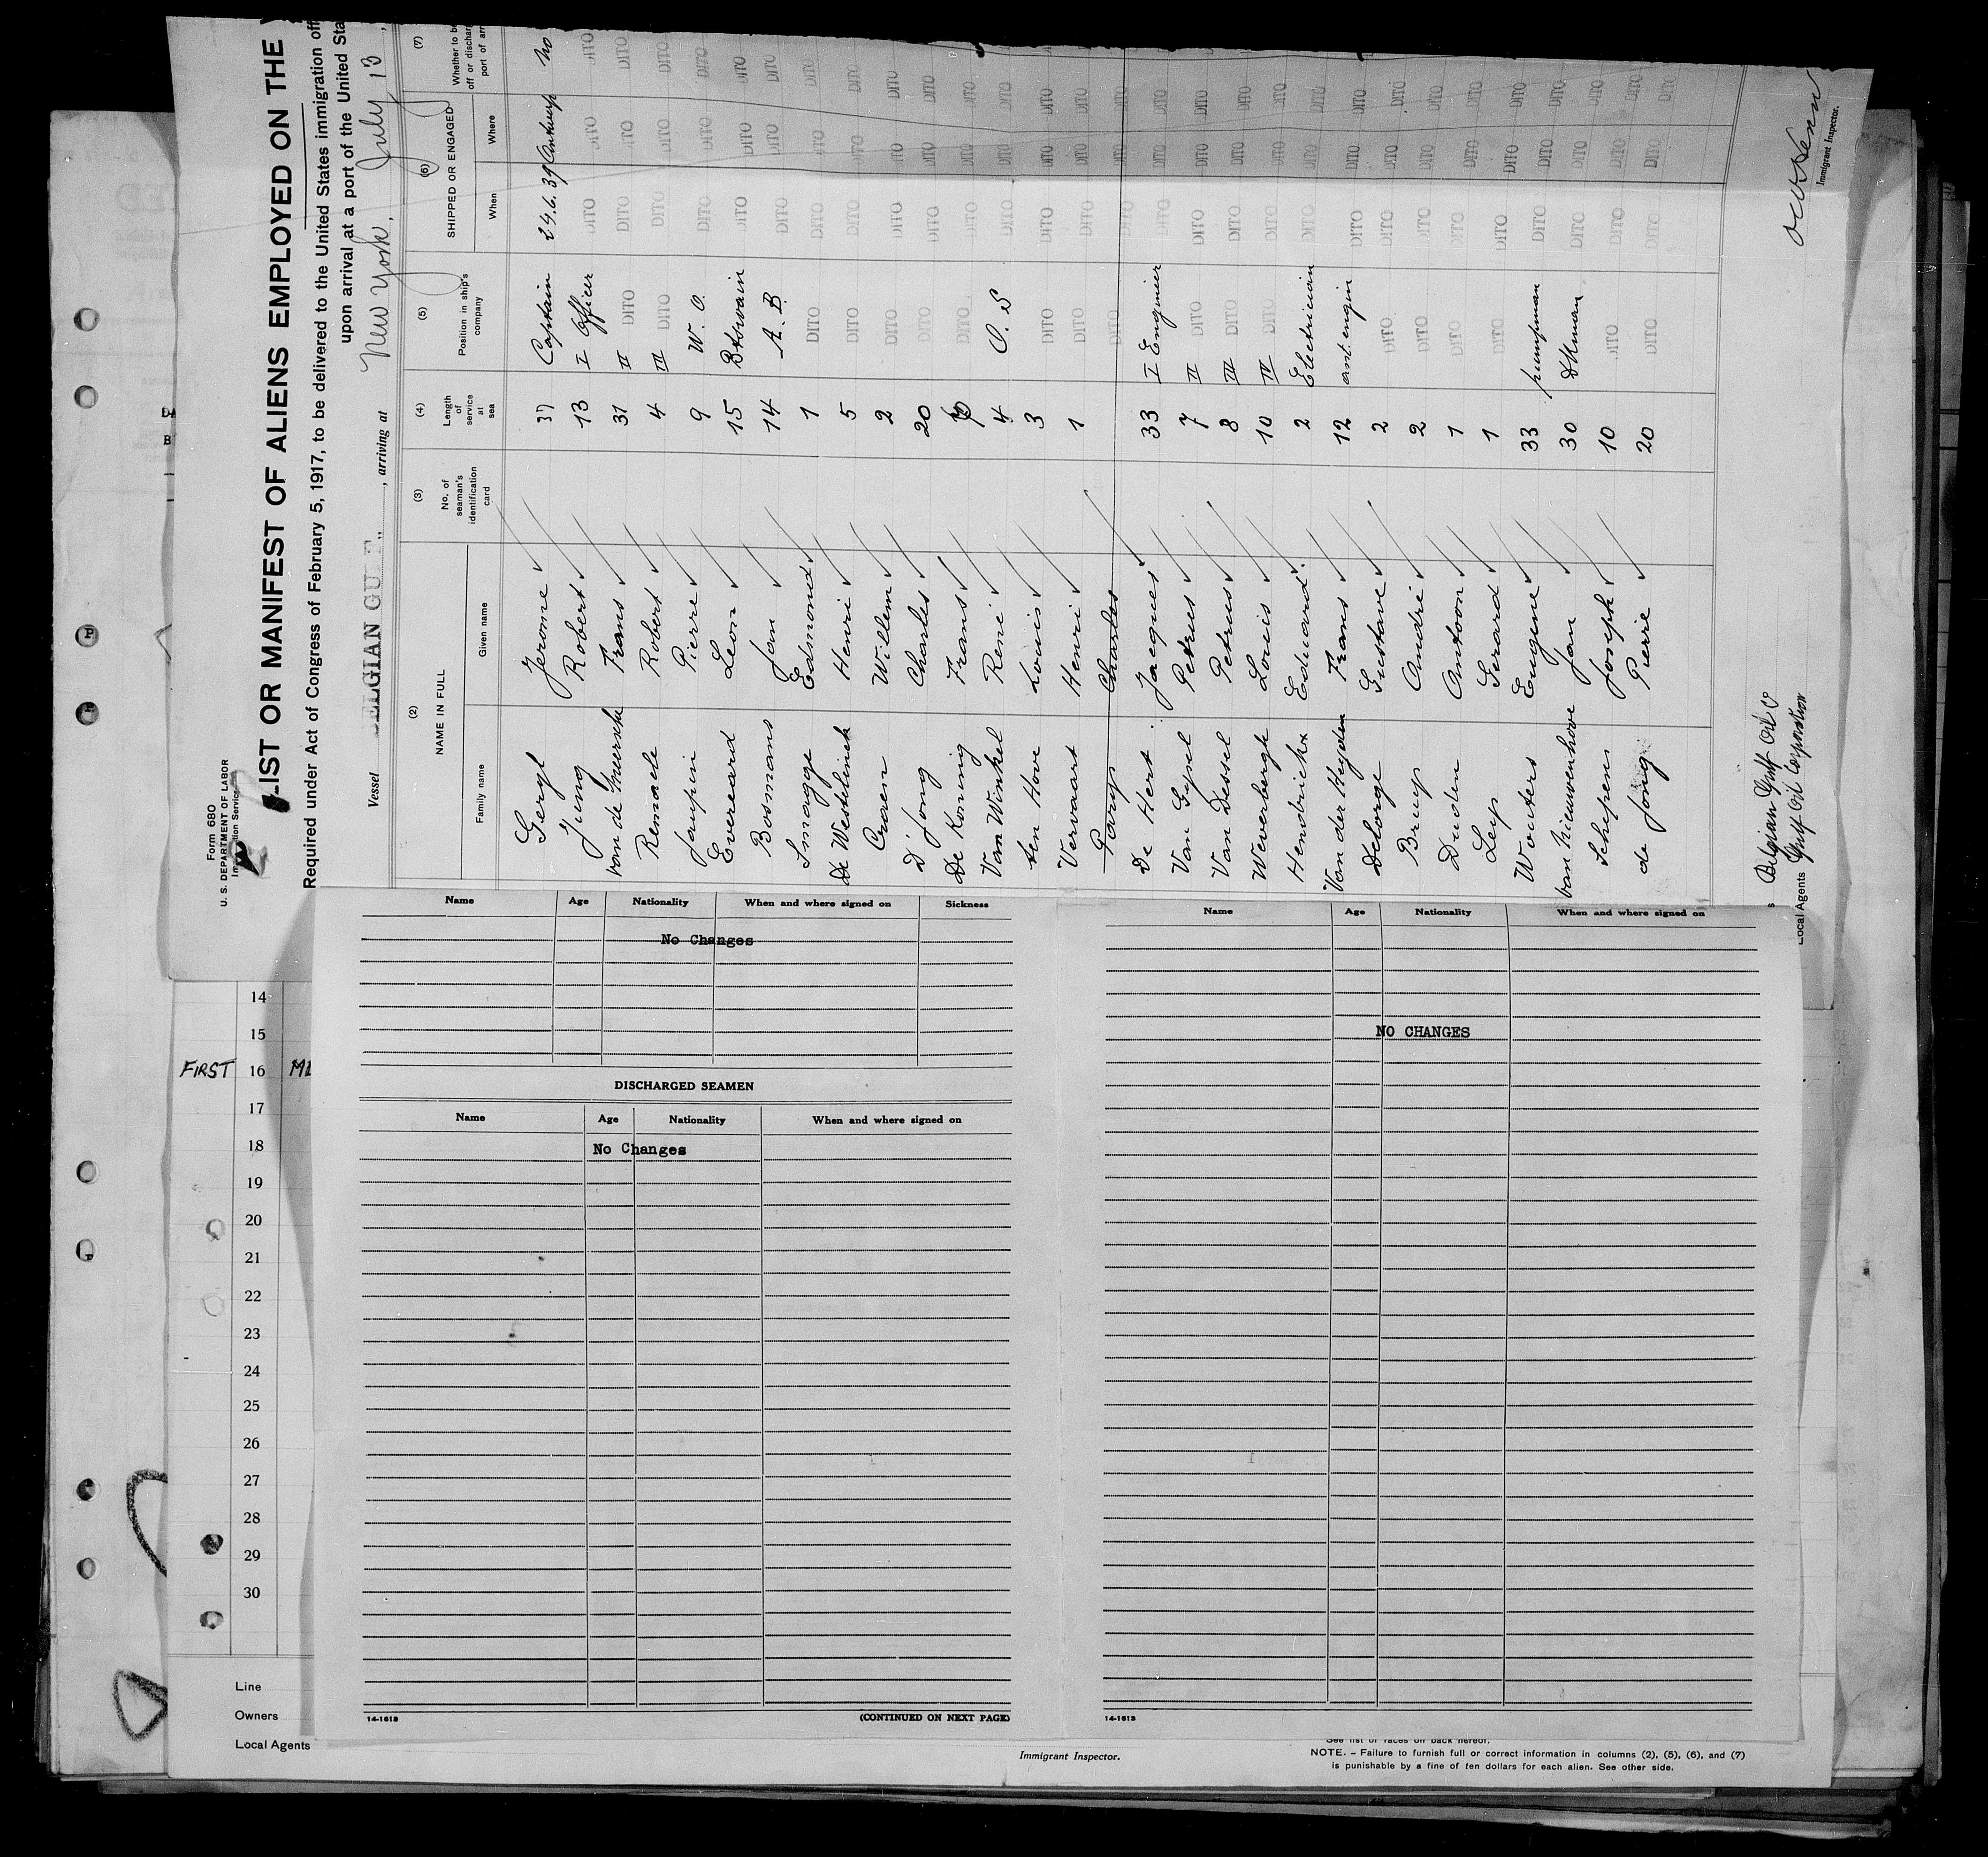 Form 680
U. S. DEPARTMENT OF LABOR
LIST OR MANIFEST OF ALIENS EMPLOYED ON THE
Required under Act of Congress of February 5, 1917, to be delivered to the United States immigration
upon arrival at a port of the United
Vessel BELGIAN GULF, arriving at New York, July 13,
(2) (3) (4) (5) (6) (7)
NAME IN FULL
Family name Given name
No. of seaman's identification card
Length of service at sea
Position in ship's company
SHIPPED OR ENGAGED
When Where
Whether to be
off or
port of
Geryl Jerome 37 Captain 24.6.39 Antwerp no
Jung Robert 13 I Officer DITO DITO DITO
van de Robert Frans 31 II DITO DITO DITO DITO
Remaele Robert 4 III DITO DITO DITO
Jaupin Pierre 9 W. O. DITO DITO DITO
Evereard Leon 15 Btswain DITO DITO DITO
Bosmans Jan 14 A. B. DITO DITO DITO
Smagge Edmond 1 DITO DITO DITO DITO
De Westelinck Henri 5 DITO DITO DITO DITO
Craen Willem 2 DITO DITO DITO DITO
D'Jong Charles 20 DITO DITO DITO DITO
De Koning Frans DITO DITO DITO DITO
Van Winkel René 4 O. S DITO DITO DITO
ten Hove Louis 3 DITO DITO DITO DITO
Vervaart Henri 1 DITO DITO DITO DITO
Parys Charles DITO DITO DITO DITO
De Hert Jacques 33 I Enginier DITO DITO DITO
Van Gypel Petrus 7 II DITO DITO DITO DITO
Van Dessel Petrus 8 III DITO DITO DITO DITO
Weverbergh Louis 10 IV DITO DITO DITO DITO
Hendrickx Eduard 2 Electrician DITO DITO DITO
Van der Heyden Frans 12 ast. engin DITO DITO DITO
Delorge Gustave 2 DITO DITO DITO DITO
Bruyp André 2 DITO DITO DITO DITO
Duden Antoon 1 DITO DITO DITO DITO
Leys Gerard 1 DITO DITO DITO DITO
Wouters Eugene 33 pumpman DITO DITO DITO
van Nieuwenhove Jan 30 DKman DITO DITO DITO
Schepens Joseph 10 DITO DITO DITO DITO
de Jong Pierre 20 DITO DITO DITO DITO
Belgian Gulf Oil Co
Local Agents Gulf Oil Corporation
Immigrant Inspector.
Name Age Nationality When and where signed on Sickness
No Changes
DISCHARGED SEAMEN
Name Age Nationality When and where signed on
No Changes
14-1613 (CONTINUED ON NEXT PAGE)
Name Age Nationality When and where signed on
NO CHANGES
14-1613
14
15
FIRST 16
17
18
19
20
21
22
23
24
25
26
27
28
29
30
Line
Owners
Local Agents
Immigrant Inspector.
See list of races on back hereof.
NOTE. – Failure to furnish full or correct information in columns (2), (5), (6), and (7)
is punishable by a fine of ten dollars for each alien. See other side.